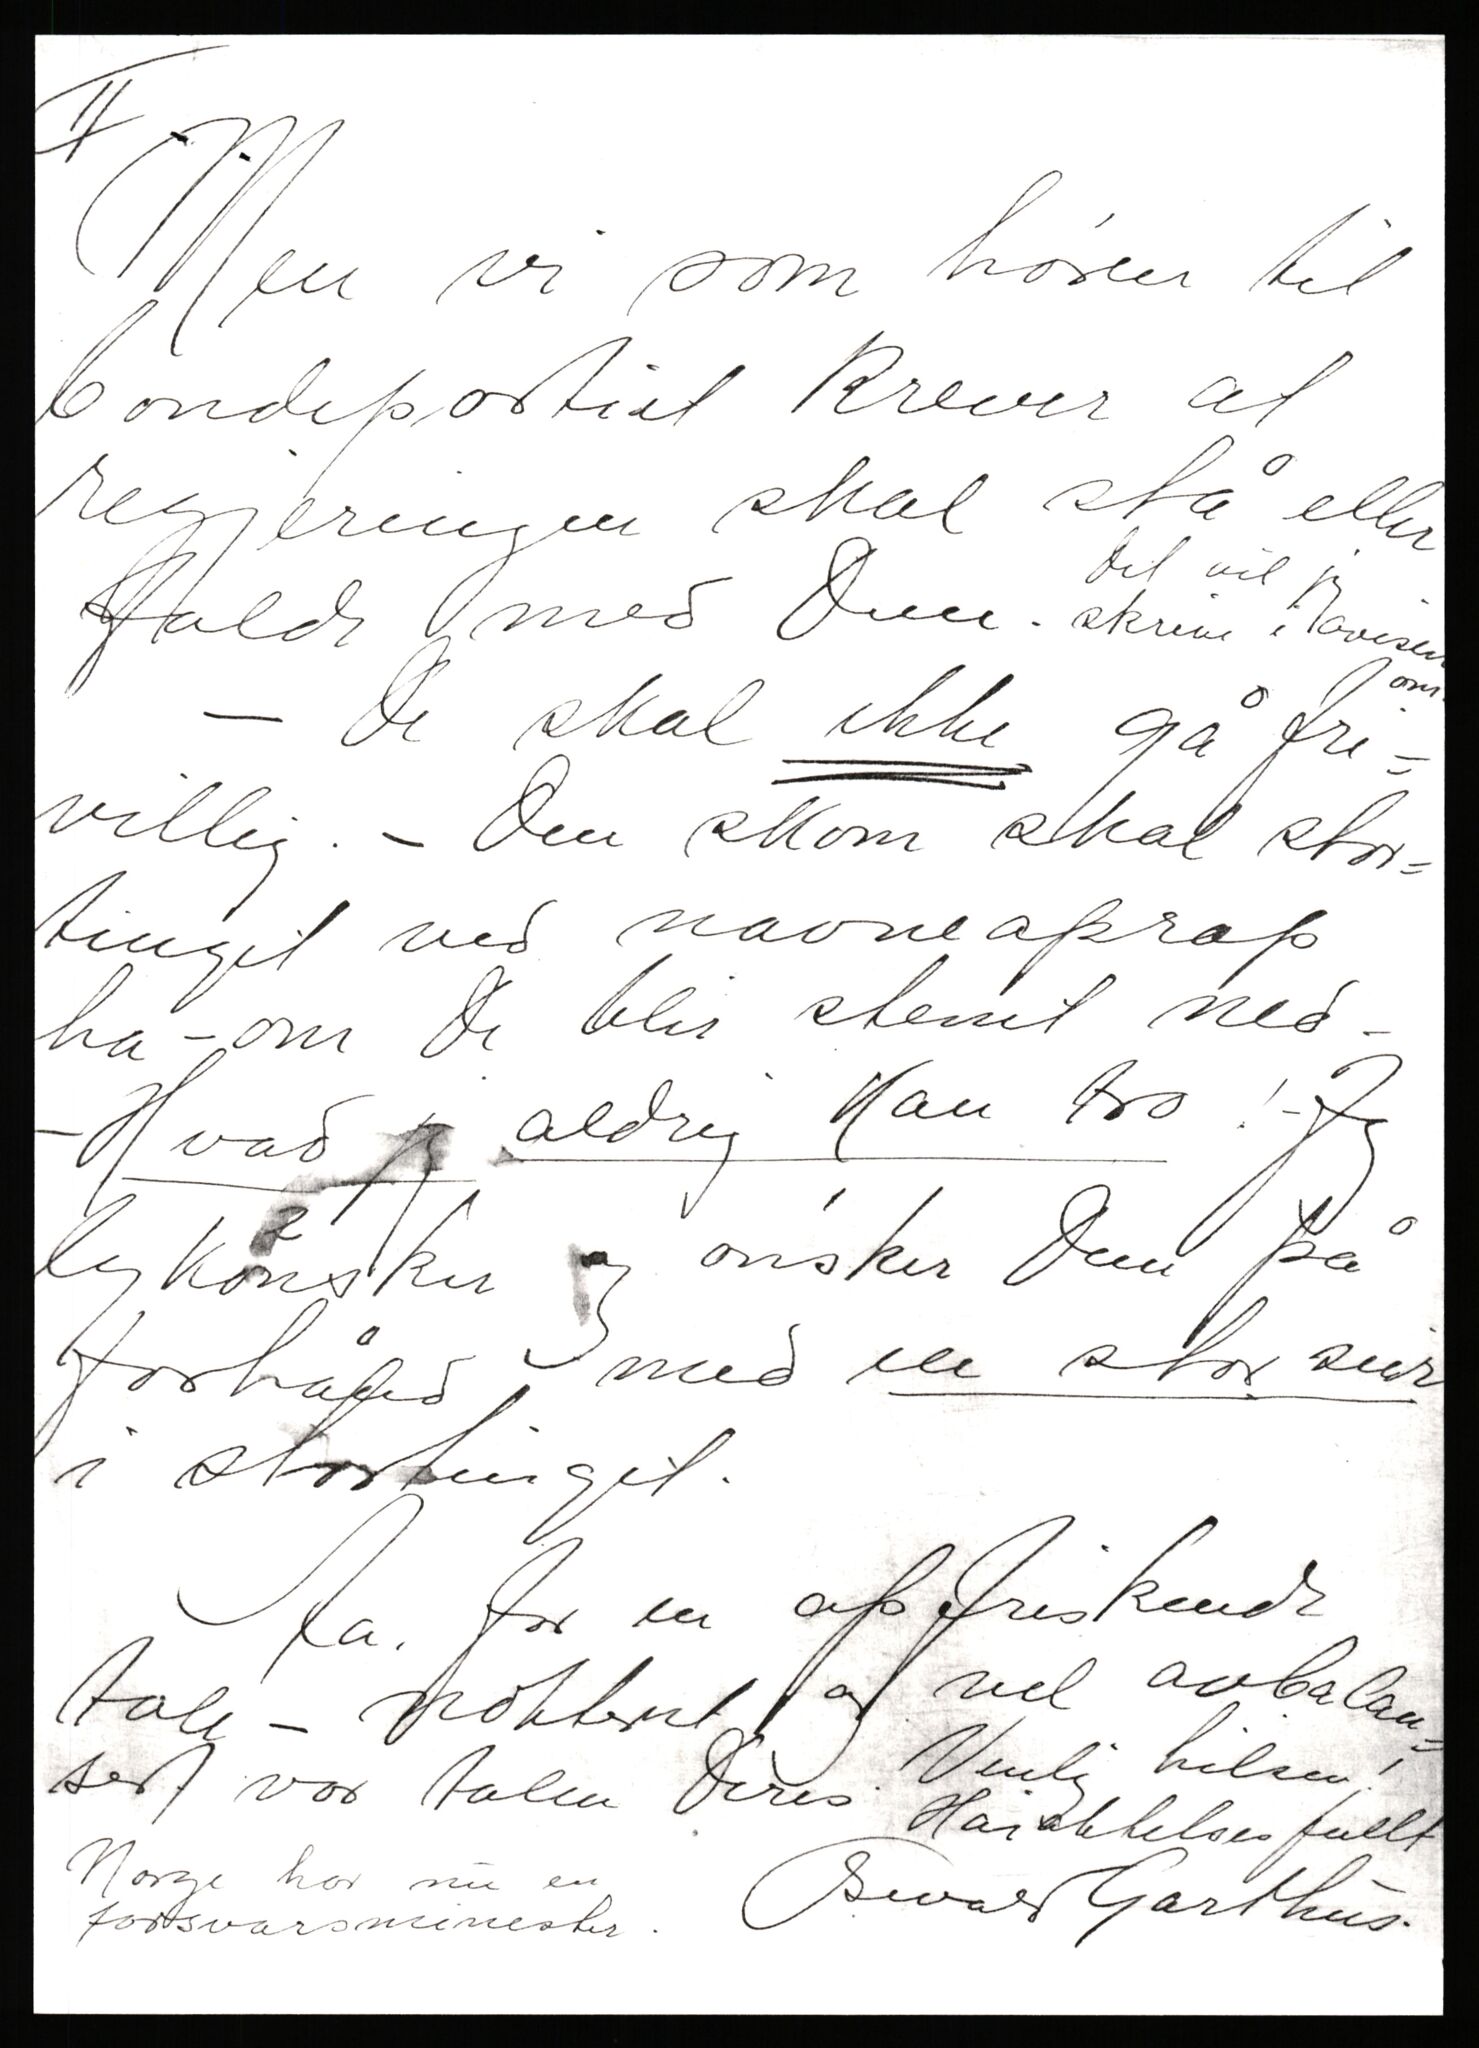 II
Men vi som hører til
bondepartiet krever at
regjeringen skal stå eller
falde med Dem. Det vil jeg
skrive i avisen
om.
– De skal ikke gå fri-
villig. – Den skam skal stor-
tinget ved navneoprop
ha – om De blir stemt ned –
– Hvad jeg aldrig kan tro! – Jeg
lykønsker og ønsker Dem på
forhånd med en stor seir
i stortinget.
Ja, for en opfriskende
tale – nøktern og vel avbalan-
sert var talen Deres. Venlig hilsen!
Høiaktelsesfullt
Oswald Garthus.
Norge har nu en
forsvarsminester.